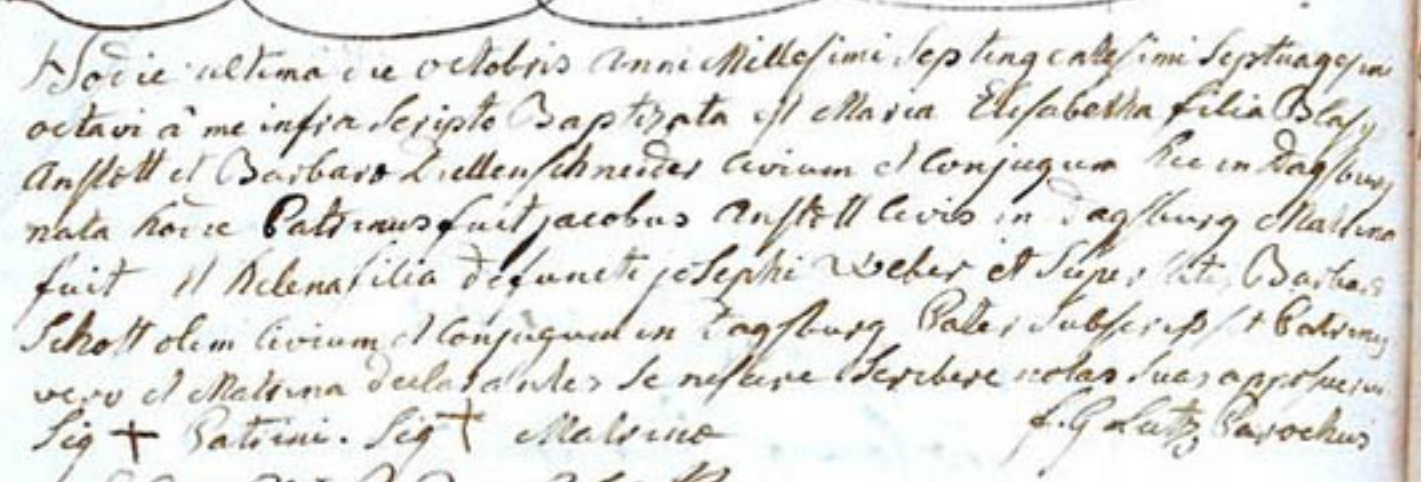 Hodie ultima die octobris anni Millesimi Septingentesimi Septuagesimi
octavi à me infra Scripto Baptizata est Maria Elisabetha filia Blasÿ
Anstett et Barbara Dillenschneider civium et Conjugum hic in Dagsburg
nata hodie Patrinus fuit jacobus Anstett Civis in Dagsburg Matrina
fuit et Helena filia defuncti josephi Weber et Superstitis Barbara
Schott olim Civium et Conjugum in Dagsburg Pater Subscripsit Patrinus
vero et Matrina declarantes Se nescire Scribere notas Suas apposuerunt
Sig + Patrini. Sig + Matrina
f. G Lutz Parochus